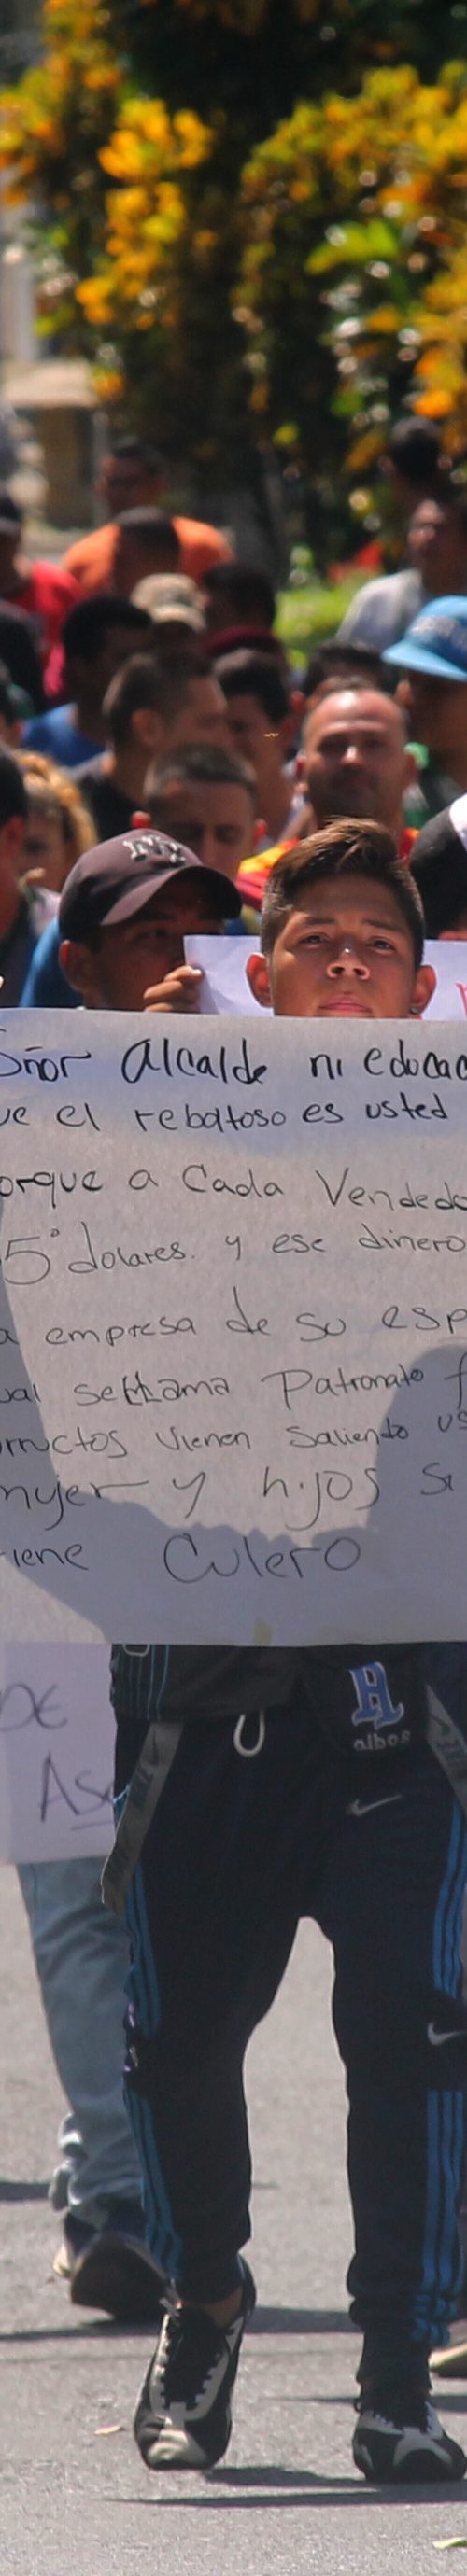 NY
Señor Alcalde ni educac
ue el rebatoso es usted
orque a Cada Vendedo
5 dolares. y ese dinero
a empresa de su esp
ual sellama Patronato f
rructos vienen saliendo us
mujer y hijos si
iene Culero
DE
H
albos
As